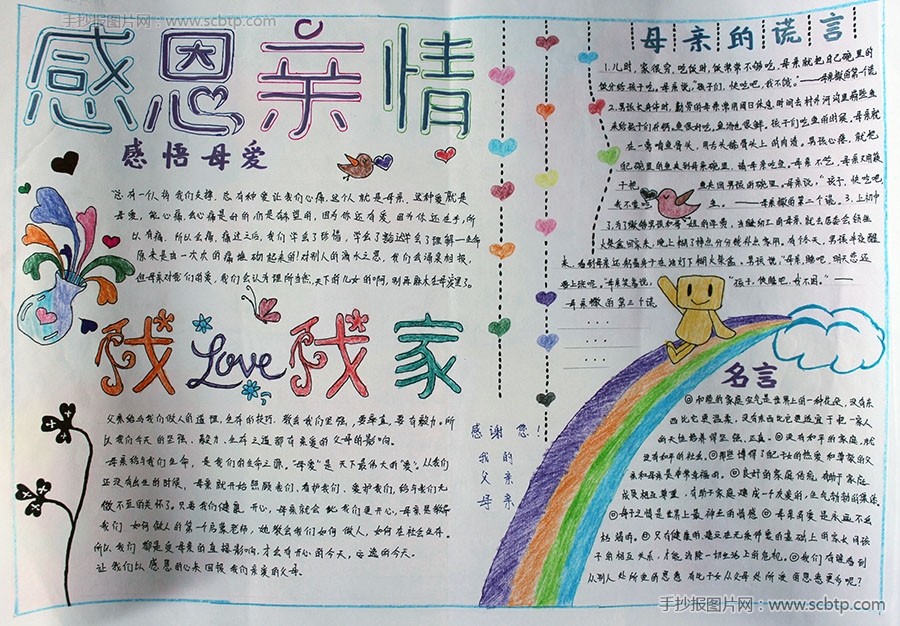 手抄报图片网：www.scbtp.com
感恩亲情
感悟母爱
总有一个人将我们支撑，总有种爱让我们心痛，这个人就是母亲，这种爱就是
母爱。
所以痛，痛过之后，我们学会了珍惜，学会了
原来是由一次次的痛
但母亲对我们的爱，我们会认为理所当然，天下的儿女的啊，别再麻木在母爱里了。
我Love我家
父亲给与我们做人的道理，生存的技巧，教会我们坚强，要率直，要有毅力。所
以我们今天的坚强、毅力、生存之道都有亲爱的父母的影响。
母亲给与我们生命，是我们的生命之源。“母爱”是天下最伟大的“爱”。从我们
还没有出生的时候，母亲就开始照顾我们、看护我们、爱护我们，给与我们无
微不至的关怀了。只要我们健康、开心，母亲就会比我们更开心，母亲是教导
我们如何做人的第一个启蒙老师，她教会我们如何做人，如何在社会生存。
所以我们都是受母亲的直接影响，才会有开心的今天、
让我们以感恩的心来回报我们亲爱的父母。
感谢您！
我的
父亲
母亲
母亲的谎言
1.儿时，家很穷，吃饭时，饭常常不够吃，母亲就把自己碗里的
饭分给孩子吃。母亲说，“孩子们，快吃吧，我不饿。”——母亲撒的第一谎
2.男孩长身体时，勤劳的母亲常用周日休息时间去村外河沟里捞些鱼
来给孩子们补钙。鱼很好吃，鱼汤也很鲜。孩子们吃鱼的时候，母亲就
在一旁啃鱼骨头，用舌头舔骨头上的肉渍。男孩心疼，就把
自己碗里的鱼夹到母亲碗里，请母亲吃鱼。母亲不吃，母亲又用筷
子把鱼夹回男孩的碗里。母亲说，“孩子，快吃吧，
我不爱吃鱼。——母亲撒的第二个谎。3.上初中
了，为了缴够男孩和哥姐的学费，当缝纫工的母亲就去居委会领些
火柴盒回家来，晚上糊了挣点分分钱补点家用。有个冬天，男孩半夜醒
来，看到母亲还躬着身子在油灯下糊火柴盒。男孩说，“母亲，睡吧，明天您还
要上班呢。”母亲笑笑说，“孩子，快睡吧，我不困。”——
母亲撒的第三个谎
···
···
···
名言
◎和睦的家庭空气是世界上的一种花朵，没有东
西比它更温柔，没有东西比它更适宜于把一家人
的天性培养得坚强、正直。◎没有和平的家庭，就
没有和平的社会。
◎良好的家庭
成员相互尊重
◎母子之情是世界上最神圣的情感◎母亲的爱是永远不会
枯竭的。◎只有健康的，建立在无条件爱的基础上的家长同孩
子的相互关系，才能消除一切
到从别人处所受的恩惠有比子女从父母处所受的恩惠更多呢？
手抄报图片网：www.scbtp.com